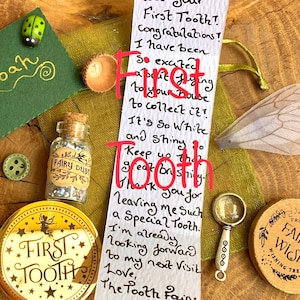 your
First Tooth!
Congratulations!
I have been
so excited
to your house
to collect it!
It's so White
and shiny so
keep up the
great brushing!
Thank you for
leaving me such
a Special Tooth.
I'm already
looking forward
to my next visit.
Love,
The Tooth Fairy
First
Tooth
oah
FAIRY DUST
FIRST
TOOTH
FAI
WIS